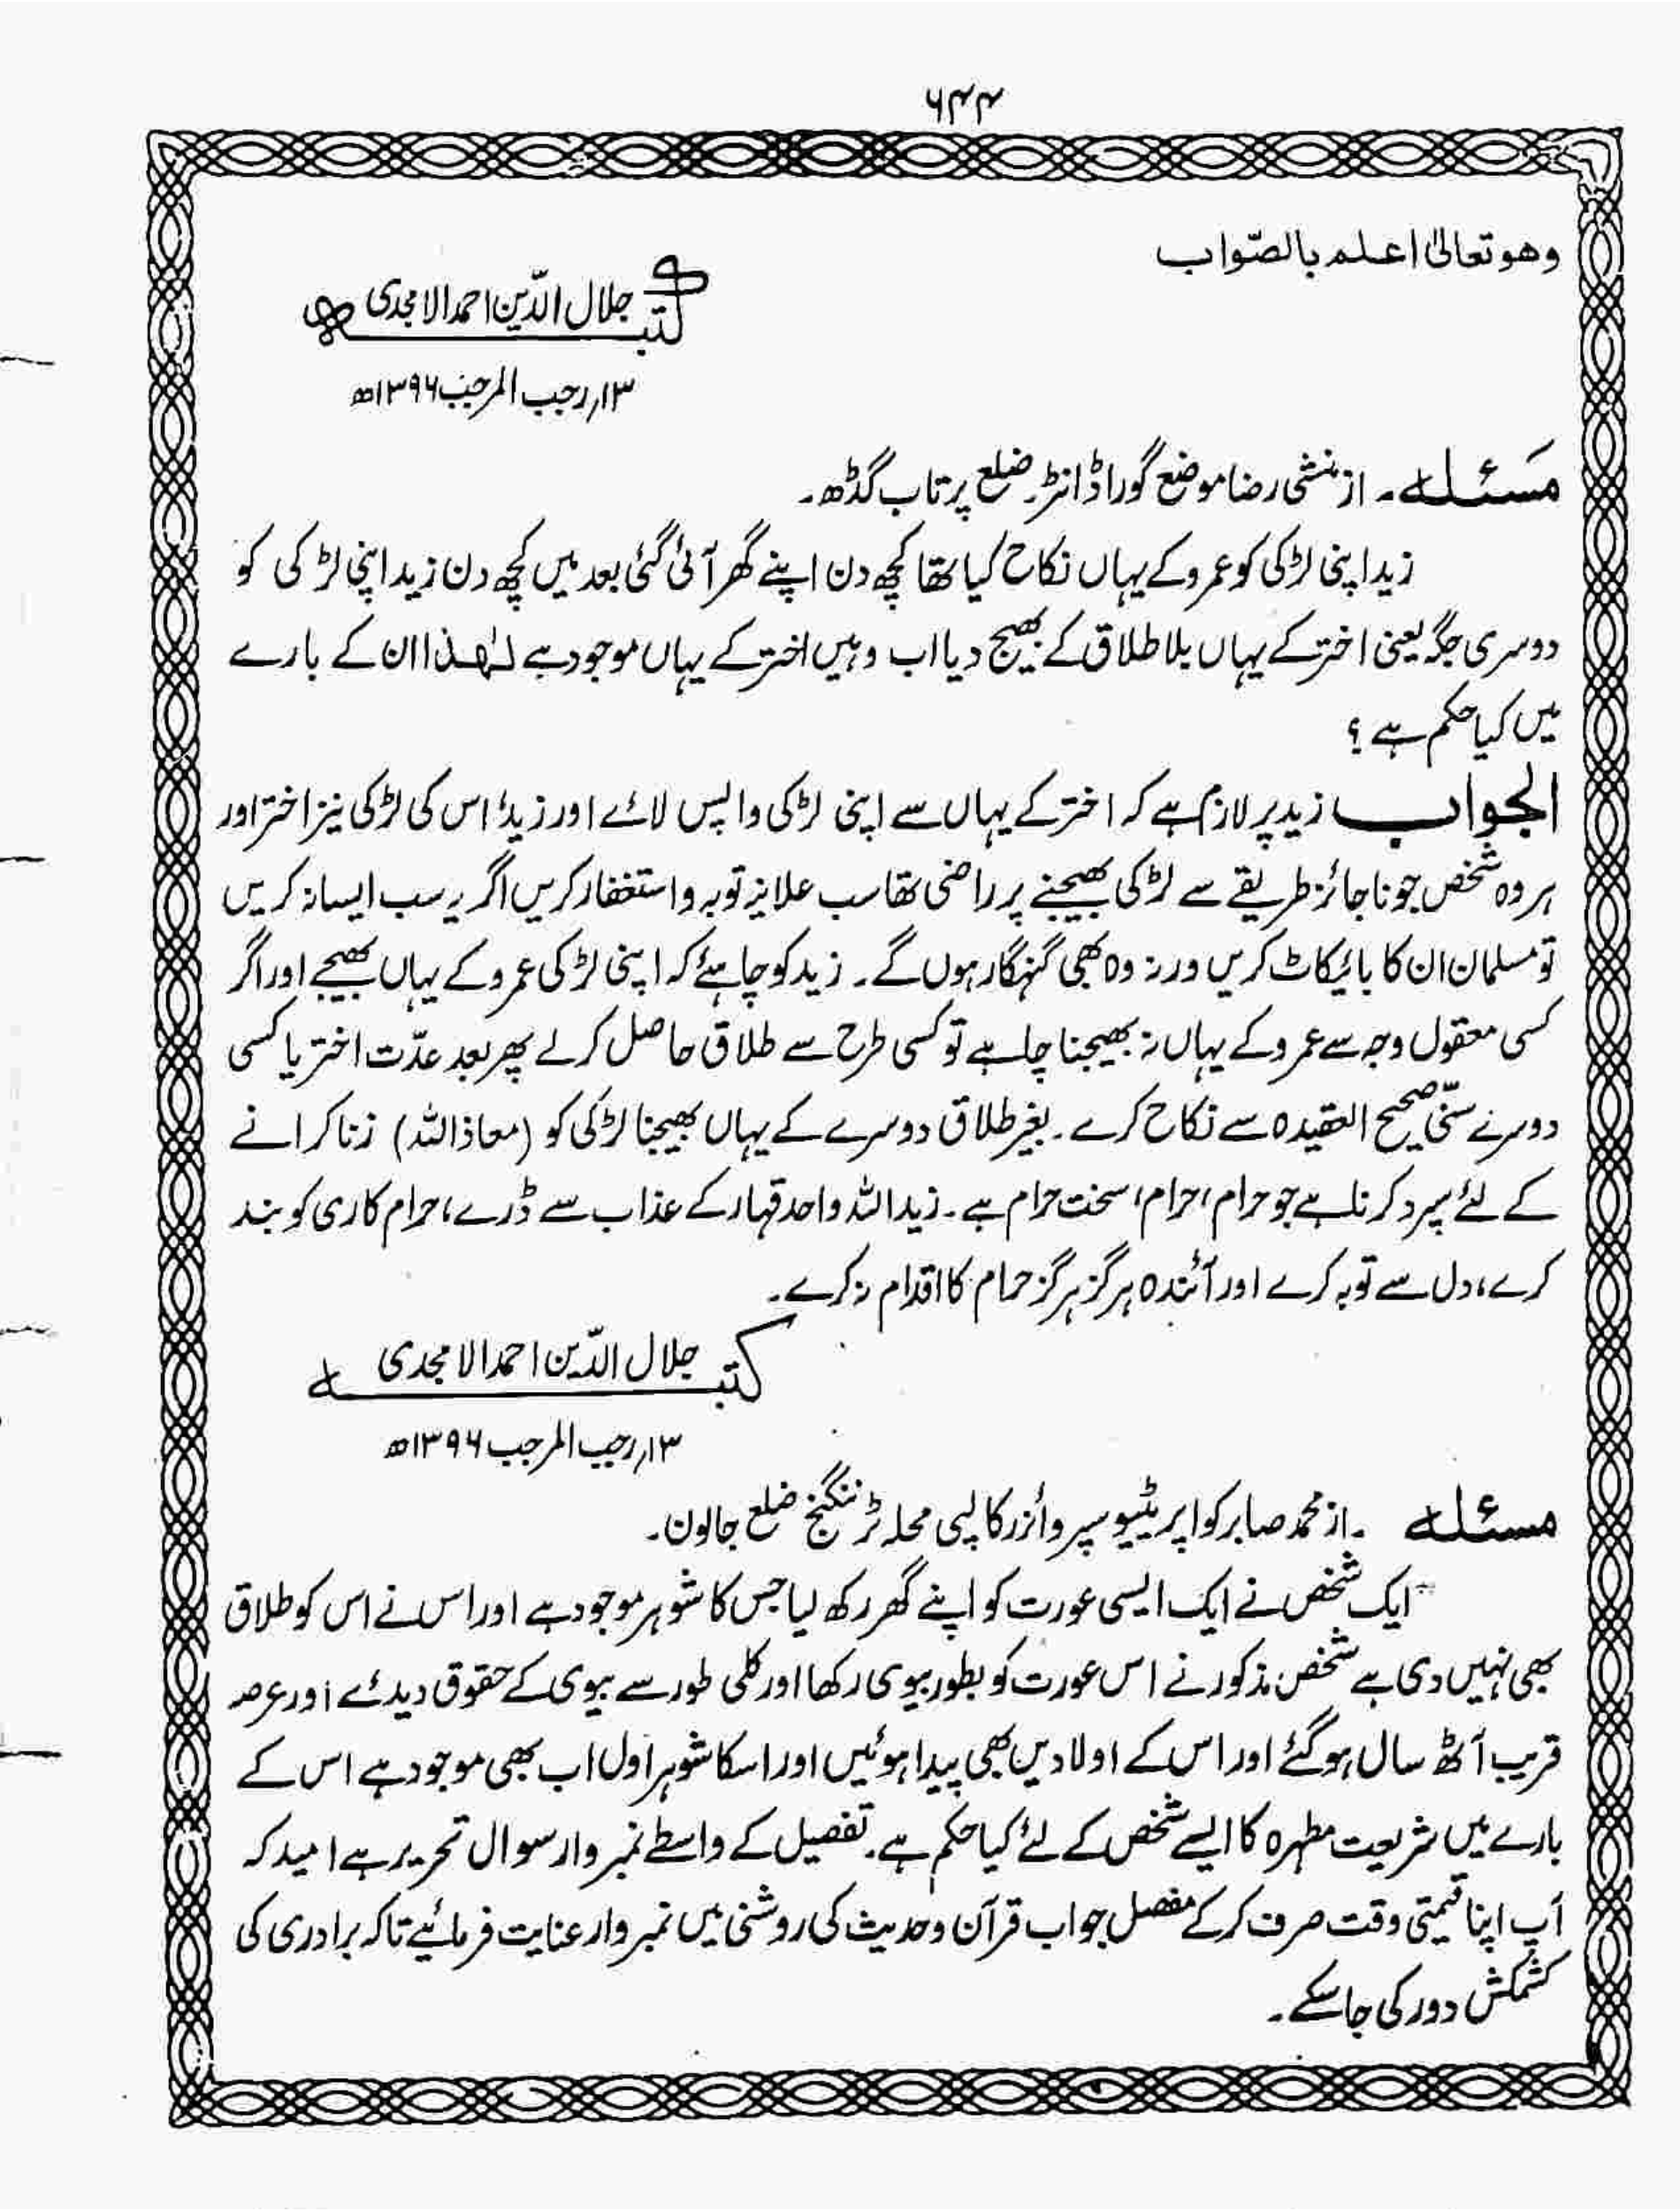 ۶۴۴
وھو تعالیٰ اعلم بالصّواب
کتبہ جلال الدّین احمد الامجدی
۱۳؍رجب المرجب ۱۳۹۶ھ
مسئلہ ۔ از منشی رضا موضع گورا ڈانٹر۔ ضلع پرتاب گڈھ۔
زید اپنی لڑکی کو عمرو کے یہاں نکاح کیا تھا کچھ دن اپنے گھر آئی گئی بعد میں کچھ دن زید اپنی لڑکی کو
دوسری جگہ یعنی اختر کے یہاں بلا طلاق کے بھیج دیا اب وہیں اختر کے یہاں موجود ہے لہٰذا ان کے بارے
میں کیا حکم ہے ؟
الجواب زید پر لازم ہے کہ اختر کے یہاں سے اپنی لڑکی واپس لائے اور زید، اس کی لڑکی نیز اختر اور
ہر وہ شخص جو ناجائز طریقے سے لڑکی بھیجنے پر راضی تھا سب علانیہ توبہ و استغفار کریں اگر یہ سب ایسا نہ کریں
تو مسلمان ان کا بائیکاٹ کریں ورنہ وہ بھی گنہگار ہوں گے۔ زید کو چاہئے کہ اپنی لڑکی عمرو کے یہاں بھیجے اور اگر
کسی معقول وجہ سے عمرو کے یہاں نہ بھیجنا چاہے تو کسی طرح سے طلاق حاصل کرلے پھر بعد عدّت اختر یا کسی
دوسرے سنّی صحیح العقیدہ سے نکاح کرے۔ بغیر طلاق دوسرے کے یہاں بھیجنا لڑکی کو (معاذ اللہ) زنا کرانے
کے لئے سپرد کرنا ہے جو حرام، حرام، سخت حرام ہے۔ زید اللہ واحد قہار کے عذاب سے ڈرے، حرام کاری کو بند
کرے، دل سے توبہ کرے اور آئندہ ہرگز ہرگز حرام کا اقدام نہ کرے۔
کتبہ جلال الدّین احمد الامجدی
۱۳؍رجب المرجب ۱۳۹۶ھ
مسئلہ ۔ از محمد صابر کواپریٹیو سپروائزر کالپی محلہ ٹرننگنج ضلع جالون۔
ایک شخص نے ایک ایسی عورت کو اپنے گھر رکھ لیا جس کا شوہر موجود ہے اور اس نے اس کو طلاق
بھی نہیں دی ہے شخص مذکور نے اس عورت کو بطور بیوی رکھا اور کلی طور سے بیوی کے حقوق دیدئے اور عرصہ
قریب آٹھ سال ہوگئے اور اس کے اولادیں بھی پیدا ہوئیں اور اسکا شوہر اول اب بھی موجود ہے اس کے
بارے میں شریعت مطہرہ کا ایسے شخص کے لئے کیا حکم ہے۔ تفصیل کے واسطے نمبروار سوال تحریر ہے امید کہ
آپ اپنا قیمتی وقت صرف کرکے مفصل جواب قرآن و حدیث کی روشنی میں نمبروار عنایت فرمائیے تاکہ برادری کی
کشمکش دور کی جاسکے۔